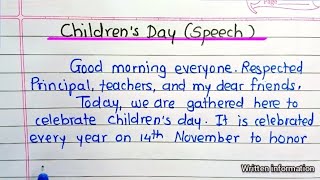 Children's Day (Speech)
Good morning everyone. Respected
Principal, teachers, and my dear friends.
Today, we are gathered here to
celebrate children's day. It is celebrated
every year on 14th November to honor
Written information